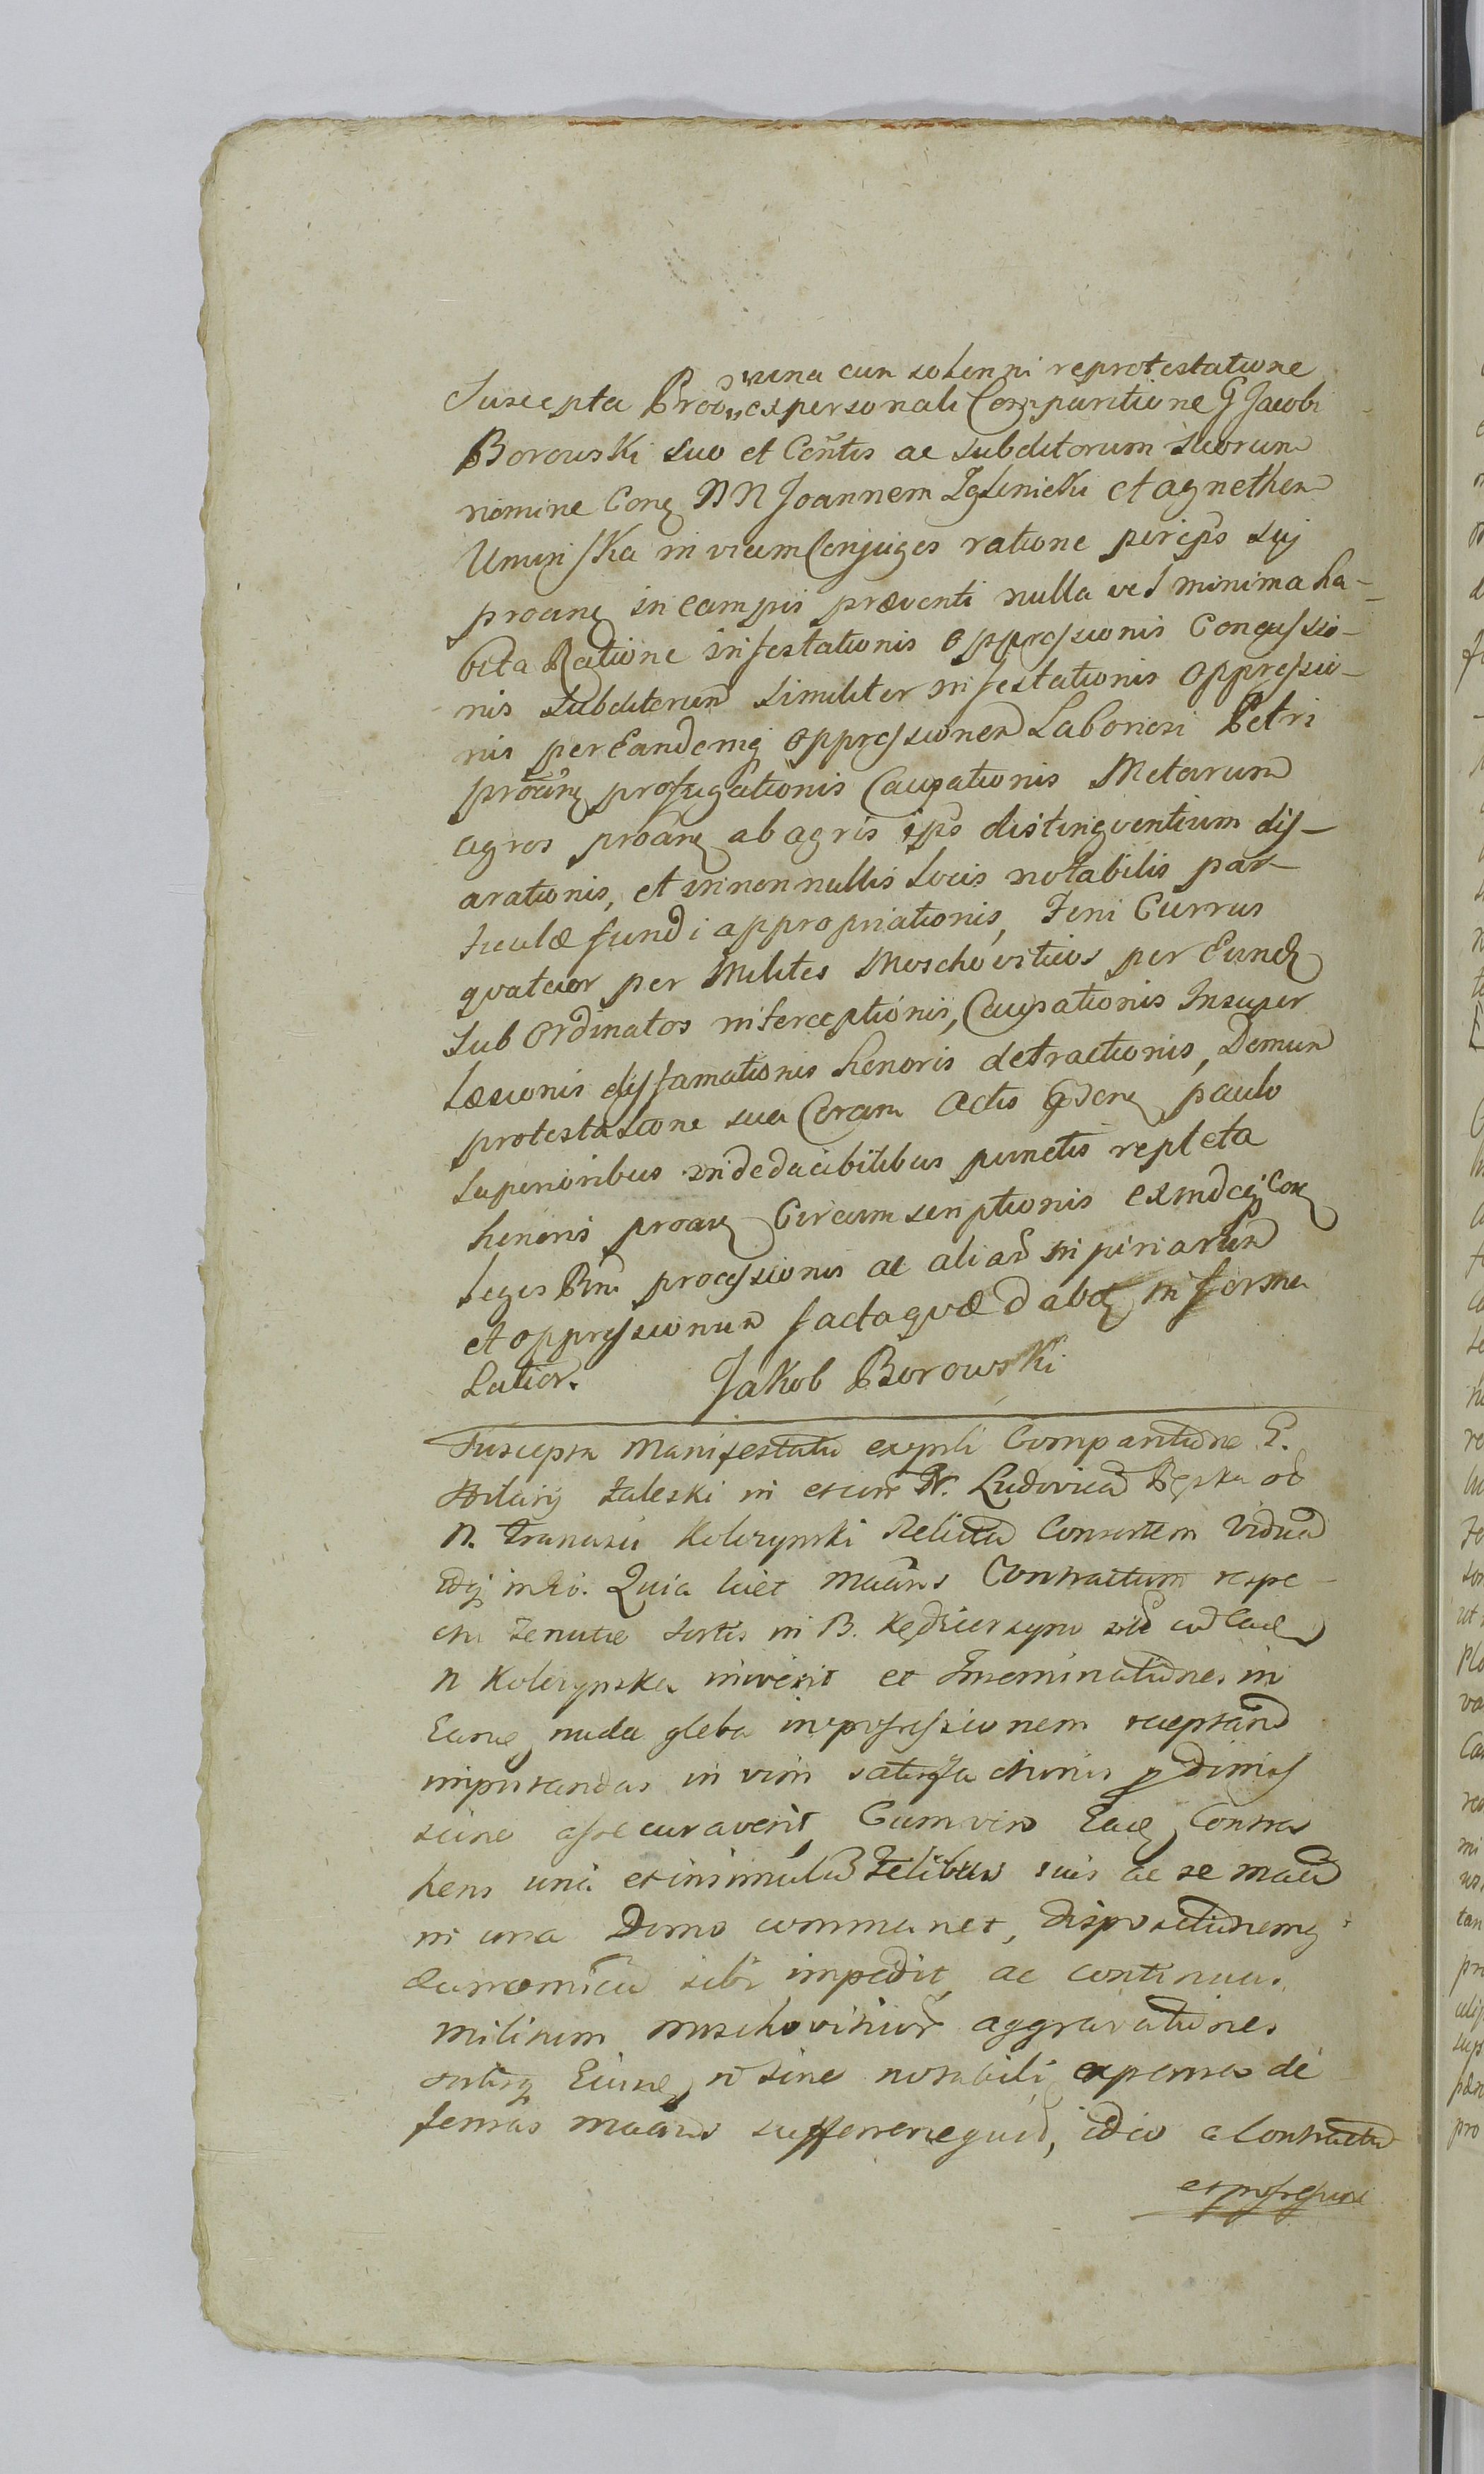 una cum solenni reprotestatione
Suscepta Proo ex personali Comparitione G Jacobi
Borowski suo et Contis ac subditorum suorum
nomine Conq NN Joannem Zglenicki et agnethem
invicem Conjuges ratione per ipso suj
proanq in campis præventi nulla vel minima ha-
bita Ratione infestationis oppressionis Concussio-
nis subditorum similiter infestationis oppressio-
nis per Eandemq oppressionem Laboriosi Petri
proanq profugationis Causationis Metarum
agros proanq ab agris ipso distingventium dis-
arationis, et in non nullis Locis notabilis par
ticulæ fundi appropriationis, Feni Currus
qvatuor per Milites Moschoviticos per Eundq
sub Ordinatos interceptionis, Causationis Insuper
Læsionis diffamationis honoris detractionis, Demum
protestatione sua Coram Actis Gdenq paulo
superioribus indeducibilibus punctis repleta
honoris proanq Circumscriptionis exindeq Con
leges Rni processionis ac aliar injuriarum
et oppressionum facta qvæ dabq in forma
Latior. Jakob Borowski
Suscepta Manifestatio exprli Comparitione G.
Hilarij Zaleski in et cone N. Ludovicam Bęska od
N. Franciszii Kolczynski Relictam Consortem Viduam
idq inło. Quia licet maans Contractum respe-
ctu Tenutæ sortis in B. Kędzierzyno cum Eade
N Kolczynska iniverit et Inseminationes in
Eanq nuda gleba in possessionem receptam
imputandas in vim satisfactionis p dimis
sione assecuraverit, Cum vero Eadq Contra
hens una et insimul cum Felibus suis ac se maam
in una Domo commanet, dispositionemq
Œconomicam sibi impedit ac continuas
militum moschoviticor aggravationes
sortisq Eiusnq n sine notabili expensa de
fensas maans sufferre nequid, ideo a Contractu
et possessione